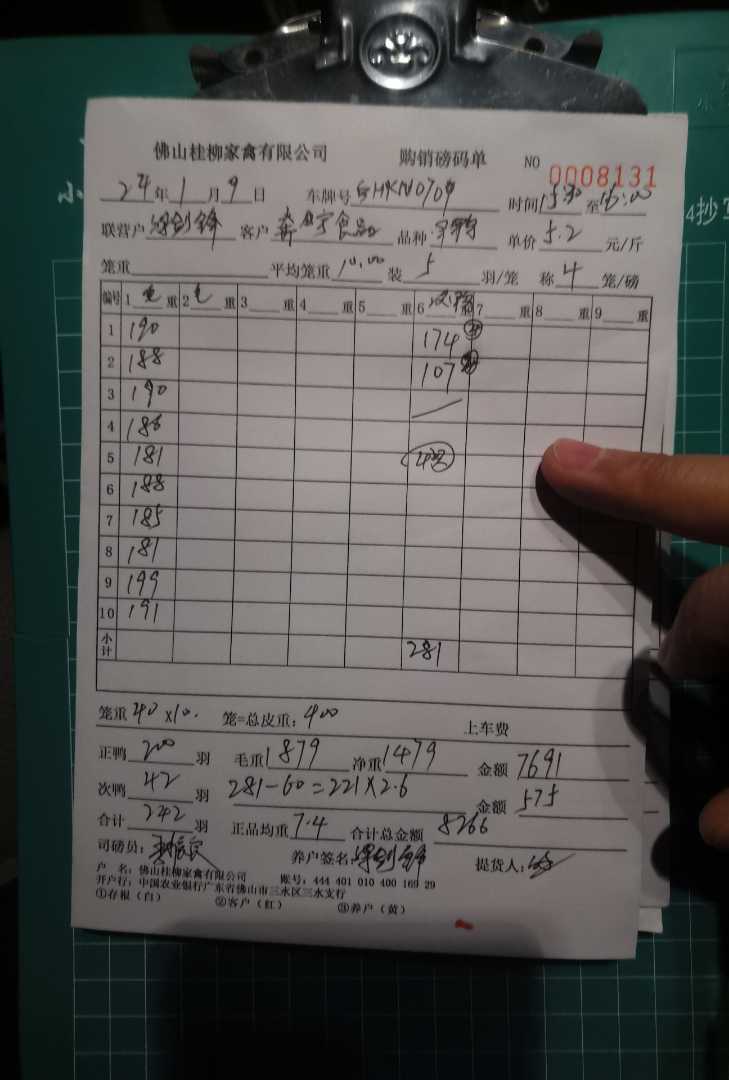 佛山桂柳家禽有限公司 购销磅码单 NO 0008131
24年1月9日 车牌号 时间15:30至16:00
联营户 客户 食品 品种 单价5.2元/斤
笼重 平均笼重10.00装5羽/笼 称4笼/磅
编号 1 毛 重 2 毛 重 3 重 4 重 5 重 6 次鸭 重 7 重 8 重 9 重
1 190 174
2 188 107
3 190
4 186
5 181
6 188
7 185
8 181
9 199
10 191
小计 281
笼重40×10. 笼=总皮重:400 上车费
正鸭200羽 毛重1879 净重1479 金额7691
次鸭42羽 281-60=221×2.6 金额575
合计242羽 正品均重7.4 合计总金额8266
司磅员: 养户签名: 提货人:
户 名:佛山桂柳家禽有限公司 账号:444 401 010 400 169 29
开户行:中国农业银行广东省佛山市三水区三水支行
①存根(白) ②客户(红) ③养户(黄)
小
4抄